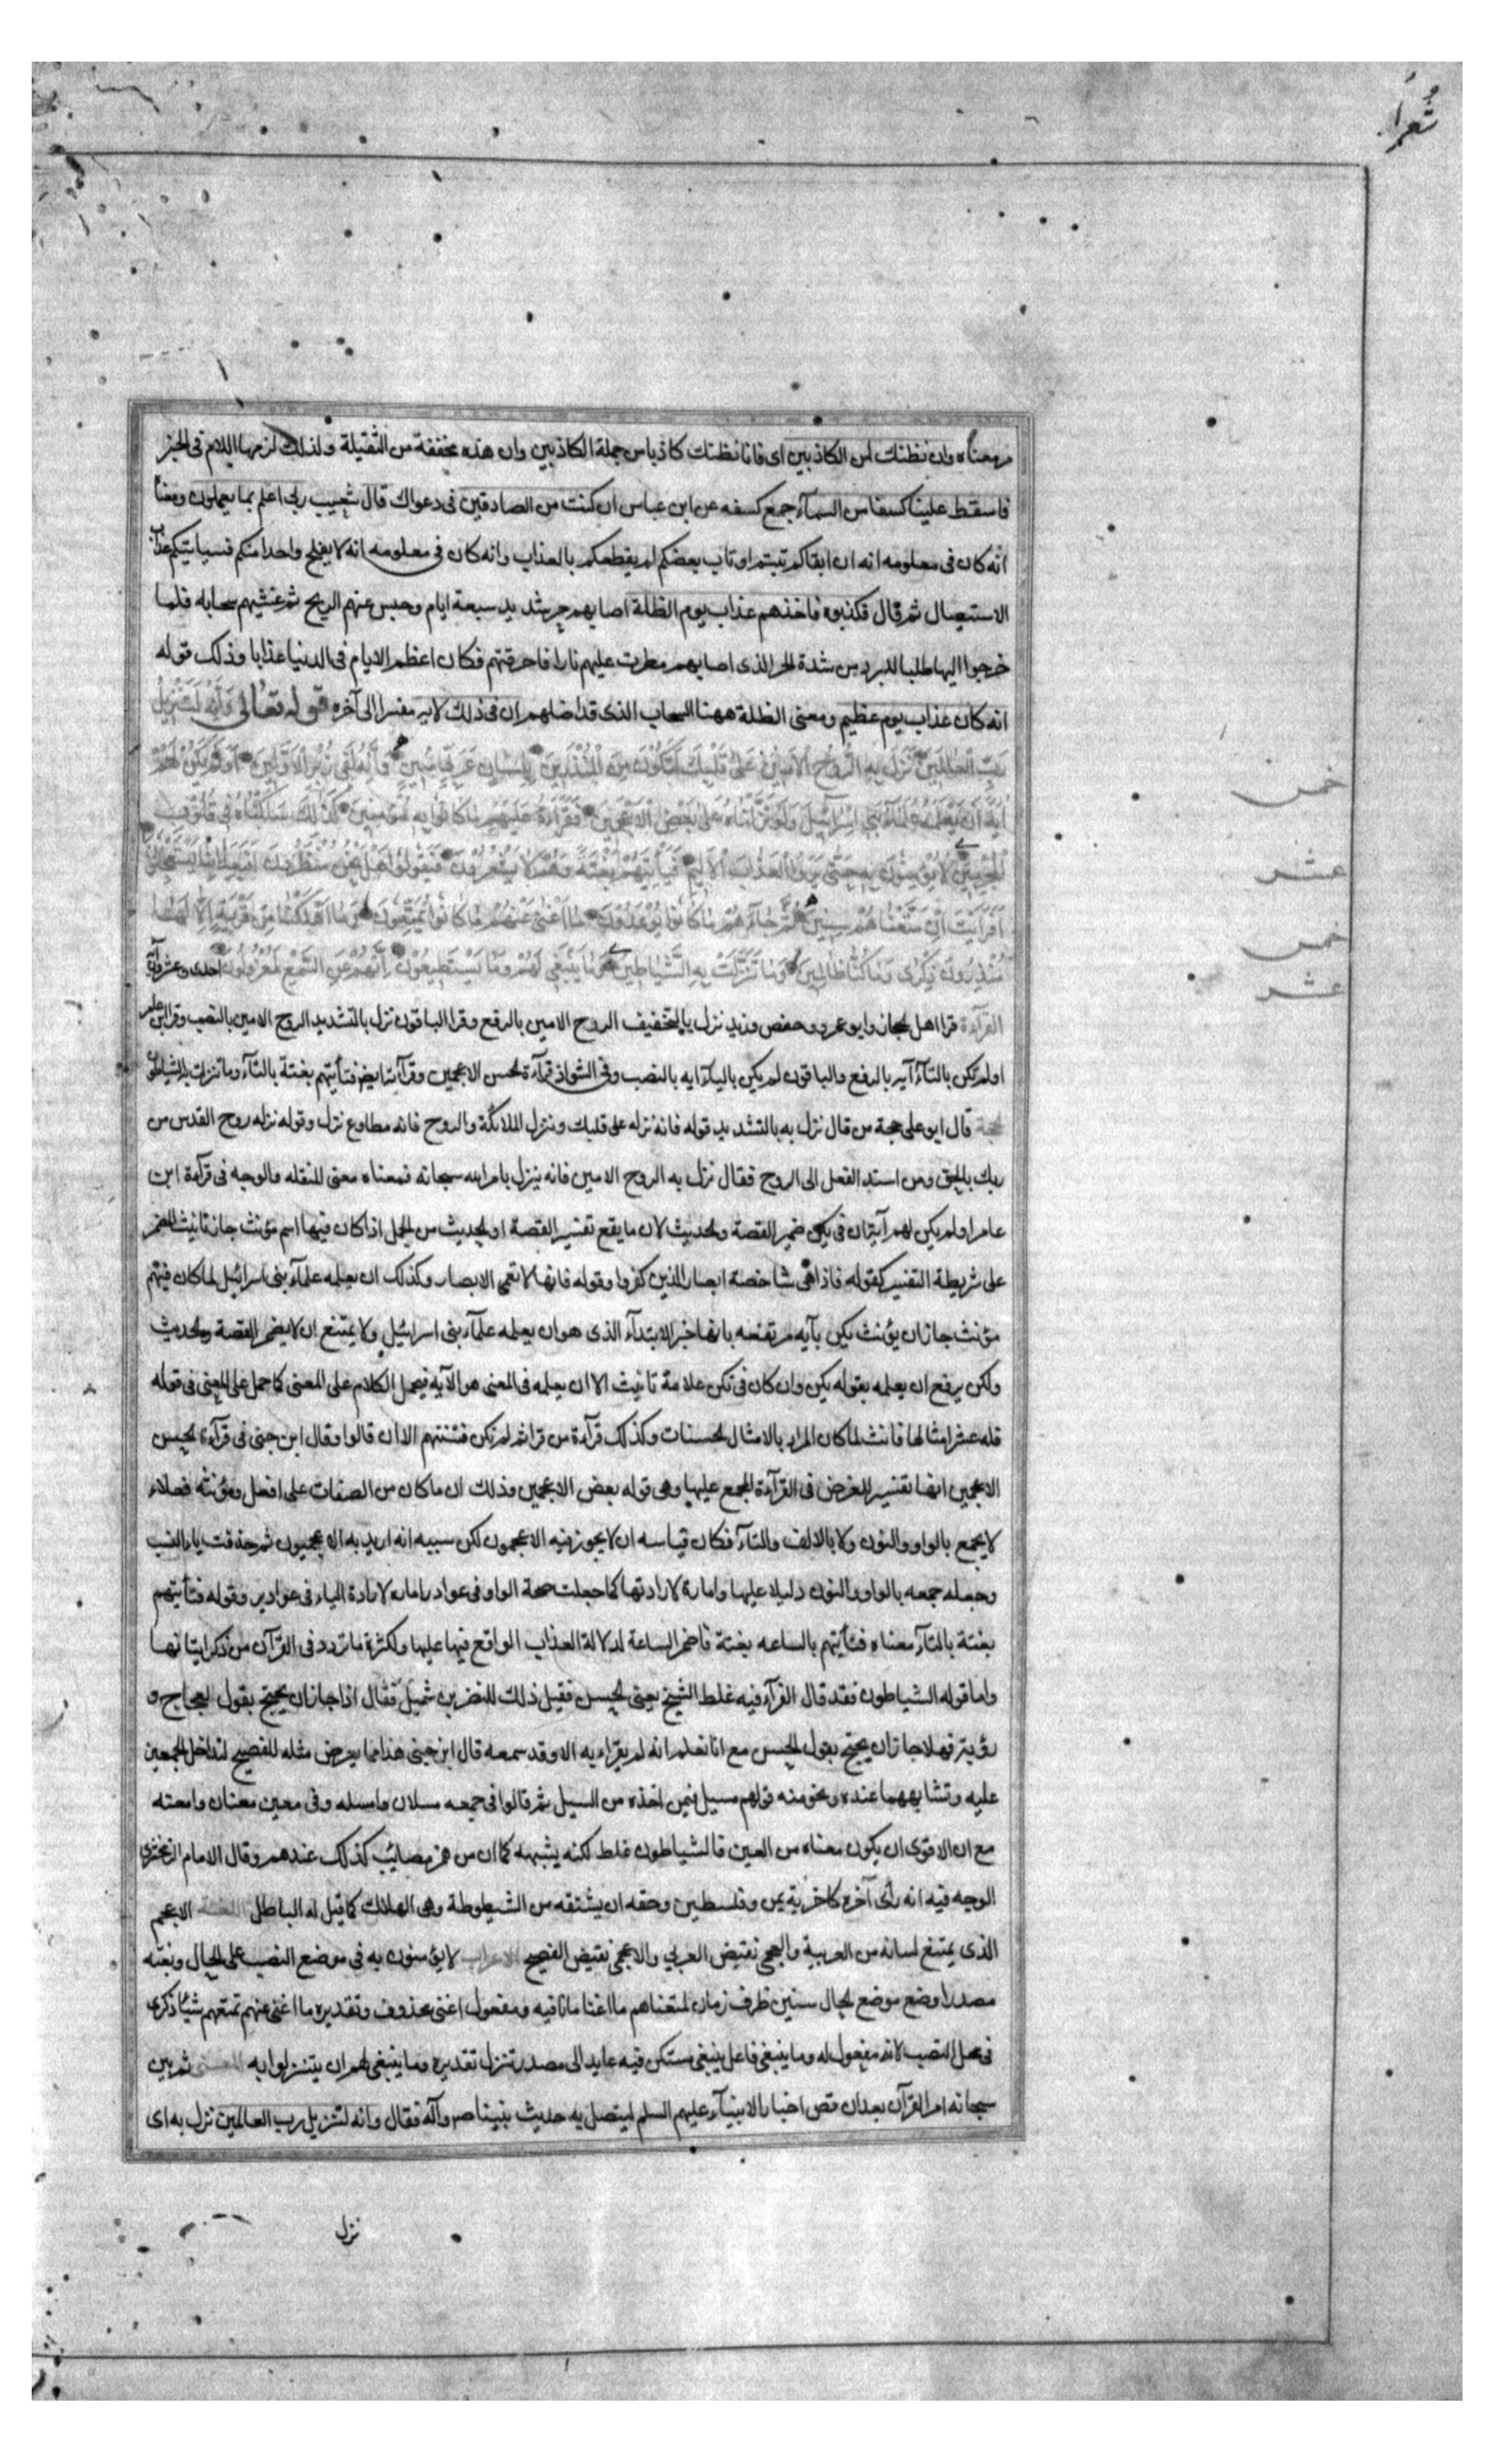 شعرا
مر معناه وان نظنك لمن الكاذبين اى فانا نظنك كاذبا من جملة الكاذبين وان هذه مخففة من الثقيلة ولذلك لزمها اللام فى الخبر
فاسقط علينا كسفا من السمآء جمع كسفه عن ابن عباس ان كنت من الصادقين فى دعواك قال شعيب ربى اعلم بما يعملون ومعناه
انه كان فى معلومه انه ان ابقاكم تبتم او تاب بعضكم لم يقطعكم بالعذاب وانه كان فى معلومه انه لا يفلح واحدا منكم فسياتيكم عذاب
الاستيصال ثم قال فكذبوه فاخذهم عذاب يوم الظلة اصابهم حر شديد سبعة ايام وحبس عنهم الريح ثم غشيهم سحابه فلما
خرجوا اليها طلبا للبرد من شدة الحر الذى اصابهم مطرت عليهم نارا فاحرقتهم فكان اعظم الايام فى الدنيا عذابا وذلك قوله
انه كان عذاب يوم عظيم ومعنى الظلة ههنا السحاب الذى قد اضلهم ان فى ذلك لايه مفسرا الى آخره قوله تعالى وَاِنَّهُ لَتَنْزِيلُ
رَبِّ الْعٰالَمِينَ نَزَلَ بِهِ الرُّوحُ الْاَمِينُ عَلىٰ قَلْبِكَ لِتَكُونَ مِنَ الْمُنْذِرِينَ بِلِسٰانٍ عَرَبِىٍّ مُبِينٍ وَاِنَّهُ لَفِى زُبُرِ الْاَوَّلِينَ اَوَلَمْ يَكُنْ لَهُمْ
اٰيَةً اَنْ يَعْلَمَهُ عُلَمٰآءُ بَنِى اِسْرٰآئِيلَ وَلَوْ نَزَّلْنٰاهُ عَلىٰ بَعْضِ الْاَعْجَمِينَ فَقَرَاَهُ عَلَيْهِمْ مٰا كٰانُوا بِهِ مُؤْمِنِينَ كَذٰلِكَ سَلَكْنٰاهُ فِى قُلُوبِ
الْمُجْرِمِينَ لٰا يُؤْمِنُونَ بِهِ حَتّىٰ يَرَوُا الْعَذٰابَ الْاَلِيمَ فَيَاْتِيَهُمْ بَغْتَةً وَهُمْ لٰا يَشْعُرُونَ فَيَقُولُوا هَلْ نَحْنُ مُنْظَرُونَ اَفَبِعَذٰابِنٰا يَسْتَعْجِلُونَ
اَفَرَاَيْتَ اِنْ مَتَّعْنٰاهُمْ سِنِينَ ثُمَّ جٰآءَهُمْ مٰا كٰانُوا يُوعَدُونَ مٰا اَغْنىٰ عَنْهُمْ مٰا كٰانُوا يُمَتَّعُونَ وَمٰا اَهْلَكْنٰا مِنْ قَرْيَةٍ اِلّٰا لَهٰا
مُنْذِرُونَ ذِكْرىٰ وَمٰا كُنّٰا ظٰالِمِينَ وَمٰا تَنَزَّلَتْ بِهِ الشَّيٰاطِينُ وَمٰا يَنْبَغِى لَهُمْ وَمٰا يَسْتَطِيعُونَ اِنَّهُمْ عَنِ السَّمْعِ لَمَعْزُولُونَ احدى وعشرون آية
القرآءة قرا اهل الحجاز وابو عمرو وحفص وزيد نزل بالتخفيف الروح الامين بالرفع وقرا الباقون نزل بالتشديد الروح الامين بالنصب وقرا ابن عامر
اولم تكن بالتآء آيه بالرفع والباقون لم يكن باليآء ايه بالنصب وفى الشواذ قرآءة الحسن الاعجميين وقرآءته ايضا فتأتيهم بغتة بالتآء وما تنزلت به الشياطون
الحجة قال ابو على حجة من قال نزل به بالتشديد قوله فانه نزله على قلبك وتنزل الملائكة والروح فانه مطاوع نزل وقوله نزله روح القدس من
ربك بالحق ومن اسند الفعل الى الروح فقال نزل به الروح الامين فانه ينزل بامر الله سبحانه فمعناه معنى المثقله والوجه فى قرآءة ابن
عامر اولم يكن لهم آية ان فى يكن ضمير القصة والحديث لان ما يقع تفسير القصة او الحديث من الجمل اذا كان فيها اسم مؤنث جاز تانيث المضمر
على شريطة التفسير كقوله فاذا هى شاخصة ابصار الذين كفروا وقوله فانها لا تعمى الابصار وكذلك ان يعلمه علمآء بنى اسرائيل لما كان فيهم
مؤنث جاز ان يؤنث يكن بآيه مرتفعه بانها خبر الابتدآء الذى هو ان يعلمه علمآء بنى اسرائيل ولا يمتنع ان لا يضمر القصة والحديث
ولكن يرفع ان يعلمه بقوله يكن وان كان فى تكن علامة تانيث الا ان يعلمه فى المعنى هو الآيه فيحمل الكلام على المعنى كما حمل على المعنى فى قوله
فله عشر امثالها فانث لما كان المراد بالامثال الحسنات وكذلك قرآءة من قرا ثم لم تكن فتنتهم الا ان قالوا وقال ابن جنى فى قرآءة الحسن
الاعجمين انها تفسير للغرض فى القرآءة المجمع عليها وهى قوله بعض الاعجمين وذلك ان ما كان من الصفات على افعل ومؤنثه فعلاء
لا يجمع بالواو والنون ولا بالالف والتآء فكان قياسه ان لا يجوز فيه الاعجمون لكن سببه انه اريد به الاعجميون ثم حذفت ياء النسب
وجعله جمعه بالواو والنون دليلا عليها وامارة لارادتها كما جعلت صحة الواو فى عواور امارة لارادة الياء فى عواوير وقوله فتأتيهم
بغتة بالتآء معناه فتأتيهم بالساعه بغتة فاضمر الساعة لدلالة العذاب الواقع فيها عليها ولكثرة ما تردد فى القرآن من ذكر اتيانها
واما قوله الشياطون فقد قال الفرآء فيه غلط الشيخ يعنى الحسن فقيل ذلك للنضر بن شميل فقال اذا جاز ان يحتج بقول العجاج و
رؤبة فهلا جاز ان يحتج بقول الحسن مع انا نعلم انه لم يقراء به الا وقد سمعه قال ابن جنى هذا مما يعرض مثله للفصيح لتداخل الجمعين
عليه وتشابههما عنده ونحو منه قولهم مسيل فيمن اخذه من السيل ثم قالوا فى جمعه مسلان وامسله وفى معين معنان وامعنه
مع ان الاقوى ان يكون معناه من العين فالشياطون غلط لكنه يشبهه كما ان من همز مصائب كذلك عندهم وقال الامام الزمخشرى
الوجه فيه انه رأى آخره كاخر يبرين وفلسطين وحقه ان يشتقه من الشيطوطة وهى الهلاك كما قيل له الباطل اللغة الاعجم
الذى يمتنع لسانه من العربية والعجمى نقيض العربي والاعجمى نقيض الفصيح الاعراب لا يؤمنون به فى موضع النصب على الحال وبغته
مصدر وضع موضع الحال سنين ظرف زمان لمتعناهم ما اغنا ما نافيه ومفعول اغنى محذوف وتقديره ما اغنى عنهم تمتعهم شيئا ذكرى
فى محل النصب لانه مفعول له وما ينبغى فاعل ينبغى مستكن فيه عايد الى مصدر تنزل تقديره وما ينبغى لهم ان يتنزلوا به المعنى ثم بين
سبحانه امر القرآن بعد ان قص اخبار الانبيآء عليهم السلم ليتصل به حديث نبينا ص وآله فقال وانه لتنزيل رب العالمين نزل به اى
خمس
عشر
خمس
عشر
نزل